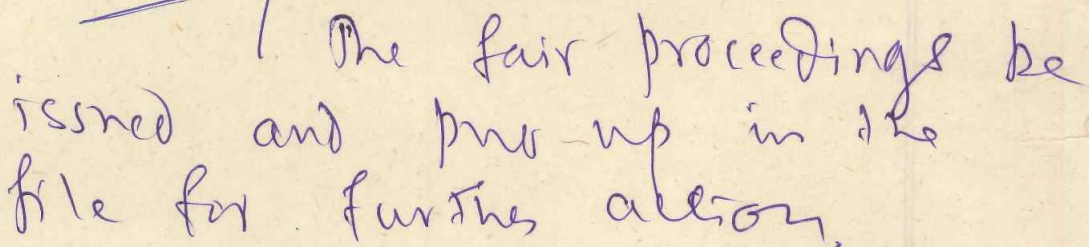 The fair proceedings be
issued and put-up in the
file for further action.